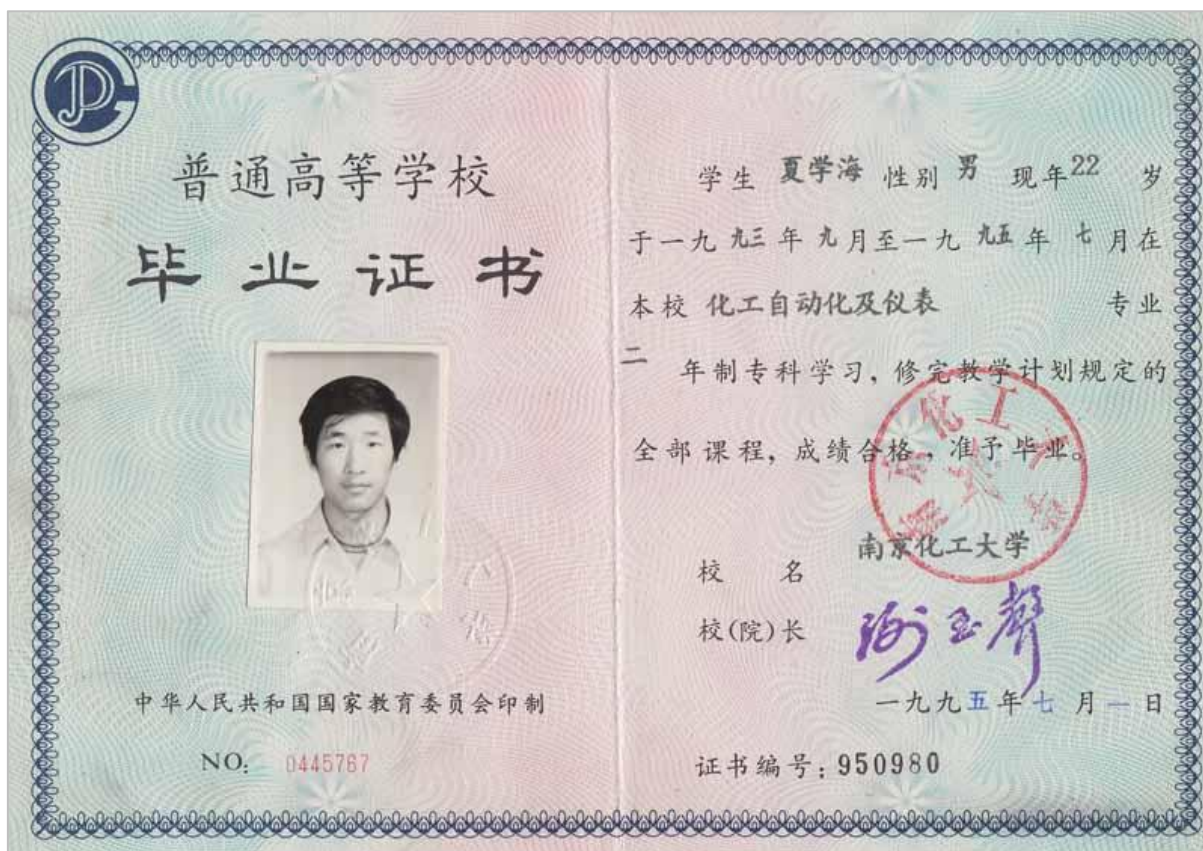 普通高等学校
毕业证书
中华人民共和国国家教育委员会印制
NO: 0445767
学生 夏学海 性别 男 现年22 岁
于一九九三年九月至一九九五年七月在
本校 化工自动化及仪表 专业
二 年制专科学习，修完教学计划规定的
全部课程，成绩合格，准予毕业。
南京化工大学
校 名 南京化工大学
校(院)长
一九九五年七月一日
证书编号：950980